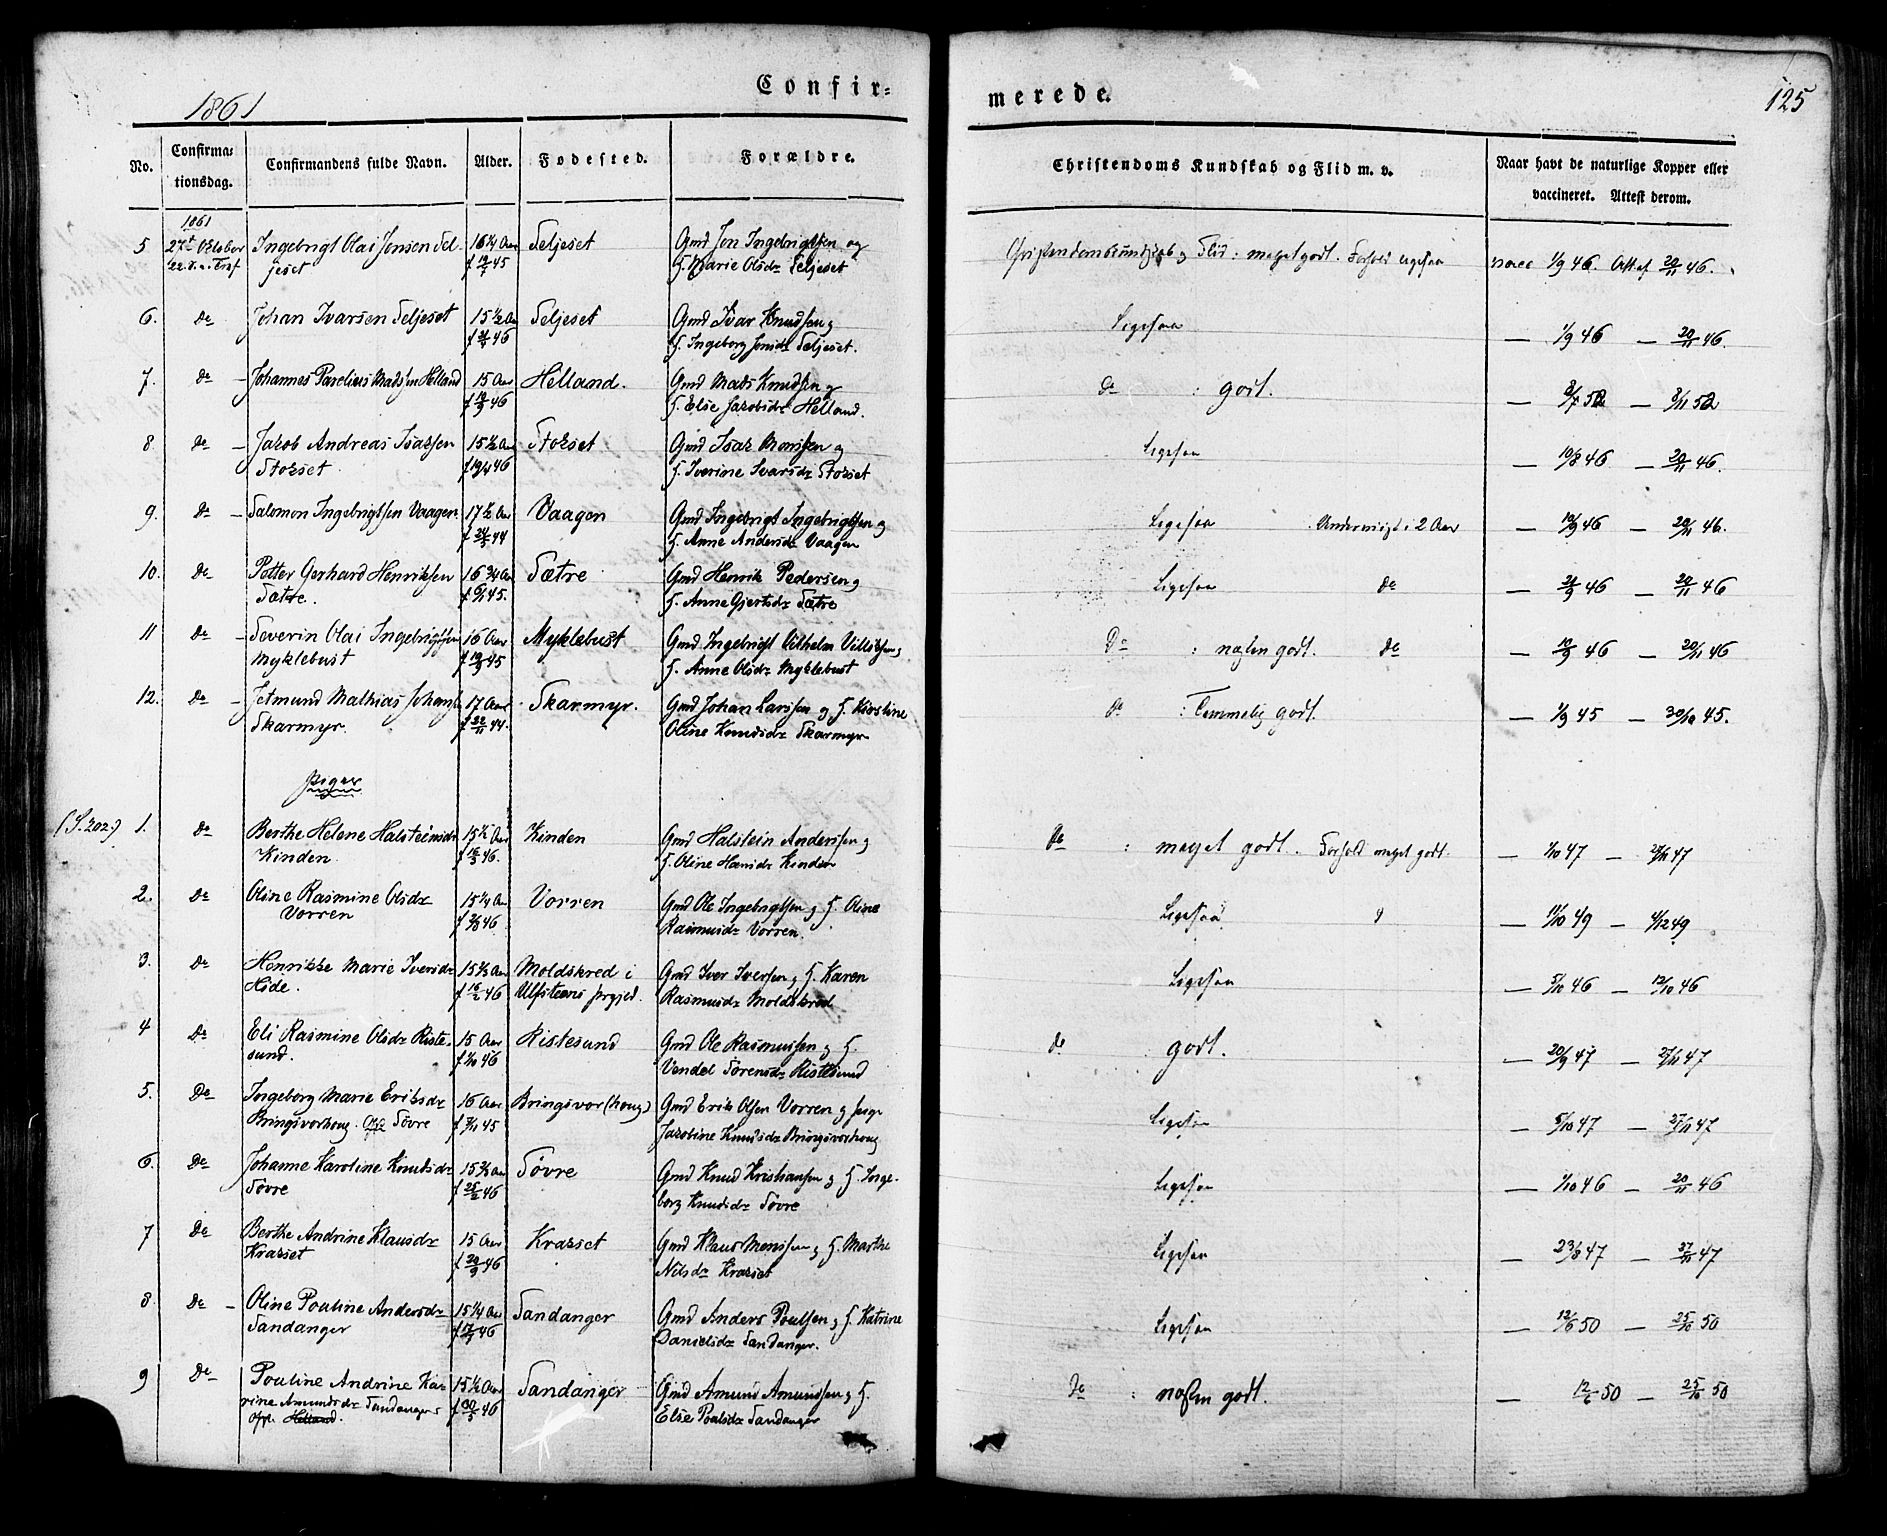 1861
Confir-
merede.
125
No.
Confirma-
tionsdag.
Confirmandens fulde Navn.
Alder.
Fødested.
Forældre.
Christendoms Kundskab og Flid m. v.
Naar havt de naturlige Kopper eller
vaccineret. Attest derom.
1861
5 27de Oktober Ingebrigt Olai Jonsen Sel- 16 1/4 Aar Seljeset Gmd Jon Ingebrigtsen og Christendomskundskab og Flid: meget godt. Forhold ligesaa vacc 1/9 46. Att af 20/11 46.
22. S. e. Tref jeset f 45 H. Marie Olsdr Seljeset
6. Do Johan Ivarsen Seljeset 15 1/2 Aar Seljeset Gmd Ivar Knudsen og Ligesaa — 1/9 46 — 20/11 46.
f 46 H. Ingeborg Jonsdr Seljeset.
7. Do — Johannes Pareliers Madsen Helland 15 Aar Helland. Gmd Mads Knudsen og do : godt. — 8/7 52 — 8/11 52
f 19/9 46 H. Else Jacobsdr Helland.
8. Do — Jacob Andreas Isacsen 15 1/2 Aar Storset Gmd Isac Monssen og Ligesaa — 10/8 46 — 20/11 46.
Storset f 19/4 46 H. Iverine Ivarsdr Storset
9. Do — Salomon Ingebrigtsen Vaagen 17 1/2 Aar Vaagen Gmd Ingebrigt Ingebrigtsen og Ligesaa Underviist i 2 Aar — 10/9 46 — 20/11 46.
f 44 H. Anne Andersdr Vaagen
10. Do Petter Gerhard Henriksen 16 3/4 Aar Sætre Gmd Henrik Pedersen og Ligesaa do — 21/9 46 20/11 46
Sætre. f 6/1 45. H. Anne Gjertsdr Sætre
11 Do — Severin Olai Ingebrigtsen 16 Aar Myklebust Gmd Ingebrigt Vilhelm og Do : neflen godt. do — 10/9 46 — 20/11 46
Myklebust f 19/9 45 H. Anne Olsdr Myklebust
12. Do — Jetmund Mathias Johans 17 Aar Skarmyr. Gmd Johan Larssen og H. Kirstine do : Temmelig godt. — 1/9 45 — 30/10 45.
Skarmyr. f 22/11 44. Oline Knudsdr Skarmyr
Piger
(S. 202.) 1. Do Berthe Helene Halsteinsdr 15 1/2 Aar Kinden Gmd Halstein Anderssen og Do : meget godt. Forhold meget godt. — 1/10 47 — 27/11 47
Kinden. f 16/3 46. H. Oline Hansdr Kinden
2. Do Oline Rasmine Olsdr 15 1/4 Aar Vorren Gmd Ole Ingebrigtsen og H. Oline Ligesaa — 11/10 49 — 4/12 49
Vorren f 46 Rasmusdr Vorren.
3. Do Henrikke Marie Iversdr 15 2/3 Aar Moldskred i Gmd Iver Iversen og H. Karen Ligesaa — 5/10 46 — 12/10 46
Hide. f 16/2 46 Ulfsteens prgjeld. Rasmusdr Moldskred
4 Do Eli Rasmine Olsdr Riste- 15 Aar Ristesund Gmd Ole Rasmussen og H. do : godt. — 20/9 47 — 27/11 47
sund. f 1/10 46 Vendel Sørensdr Ristesund
5. Do Ingeborg Marie Eriksdr 16 Aar Bringsvor(houg) Gmd Erik Olsen Vorren og pige Ligesaa — 5/10 47 27/11 47
Bringsvorhoug. Opf Søvre f 3/11 45 Jacobine Knudsdr Bringsvorhoug
6. Do Johanne Karoline Knutsdr 15 2/3 Aar Søvre Gmd Knud Kristiansen og H. Inge- Ligesaa — 1/10 46 — 20/11 46
Søvre f 25/2 46 borg Knudsdr Søvre
7 Do Berthe Andrine Klausdr 15 Aar Kraaset Gmd Klaus Monssen og H. Marthe Ligesaa — 23/8 47 — 27/11 47
Kraaset f 20/9 46 Nilsdr Kraaset
8 Do — Oline Pouline Andersdr 15 1/4 Aar Sandanger Gmd Anders Poulsen og H. Katrine Ligesaa — 12/6 50 — 25/10 50
Sandanger f 46 Danielsdr Sandanger.
9 Do — Pouline Andrine Ka- 15 1/2 Aar Sandanger Gmd Amund Amundsen og H. Do : neflen godt. — 12/6 50 — 25/10 50
rine Amundsdr Sandanger f 30/5 46 Else Poulsdr Sandanger
opf. Helland.